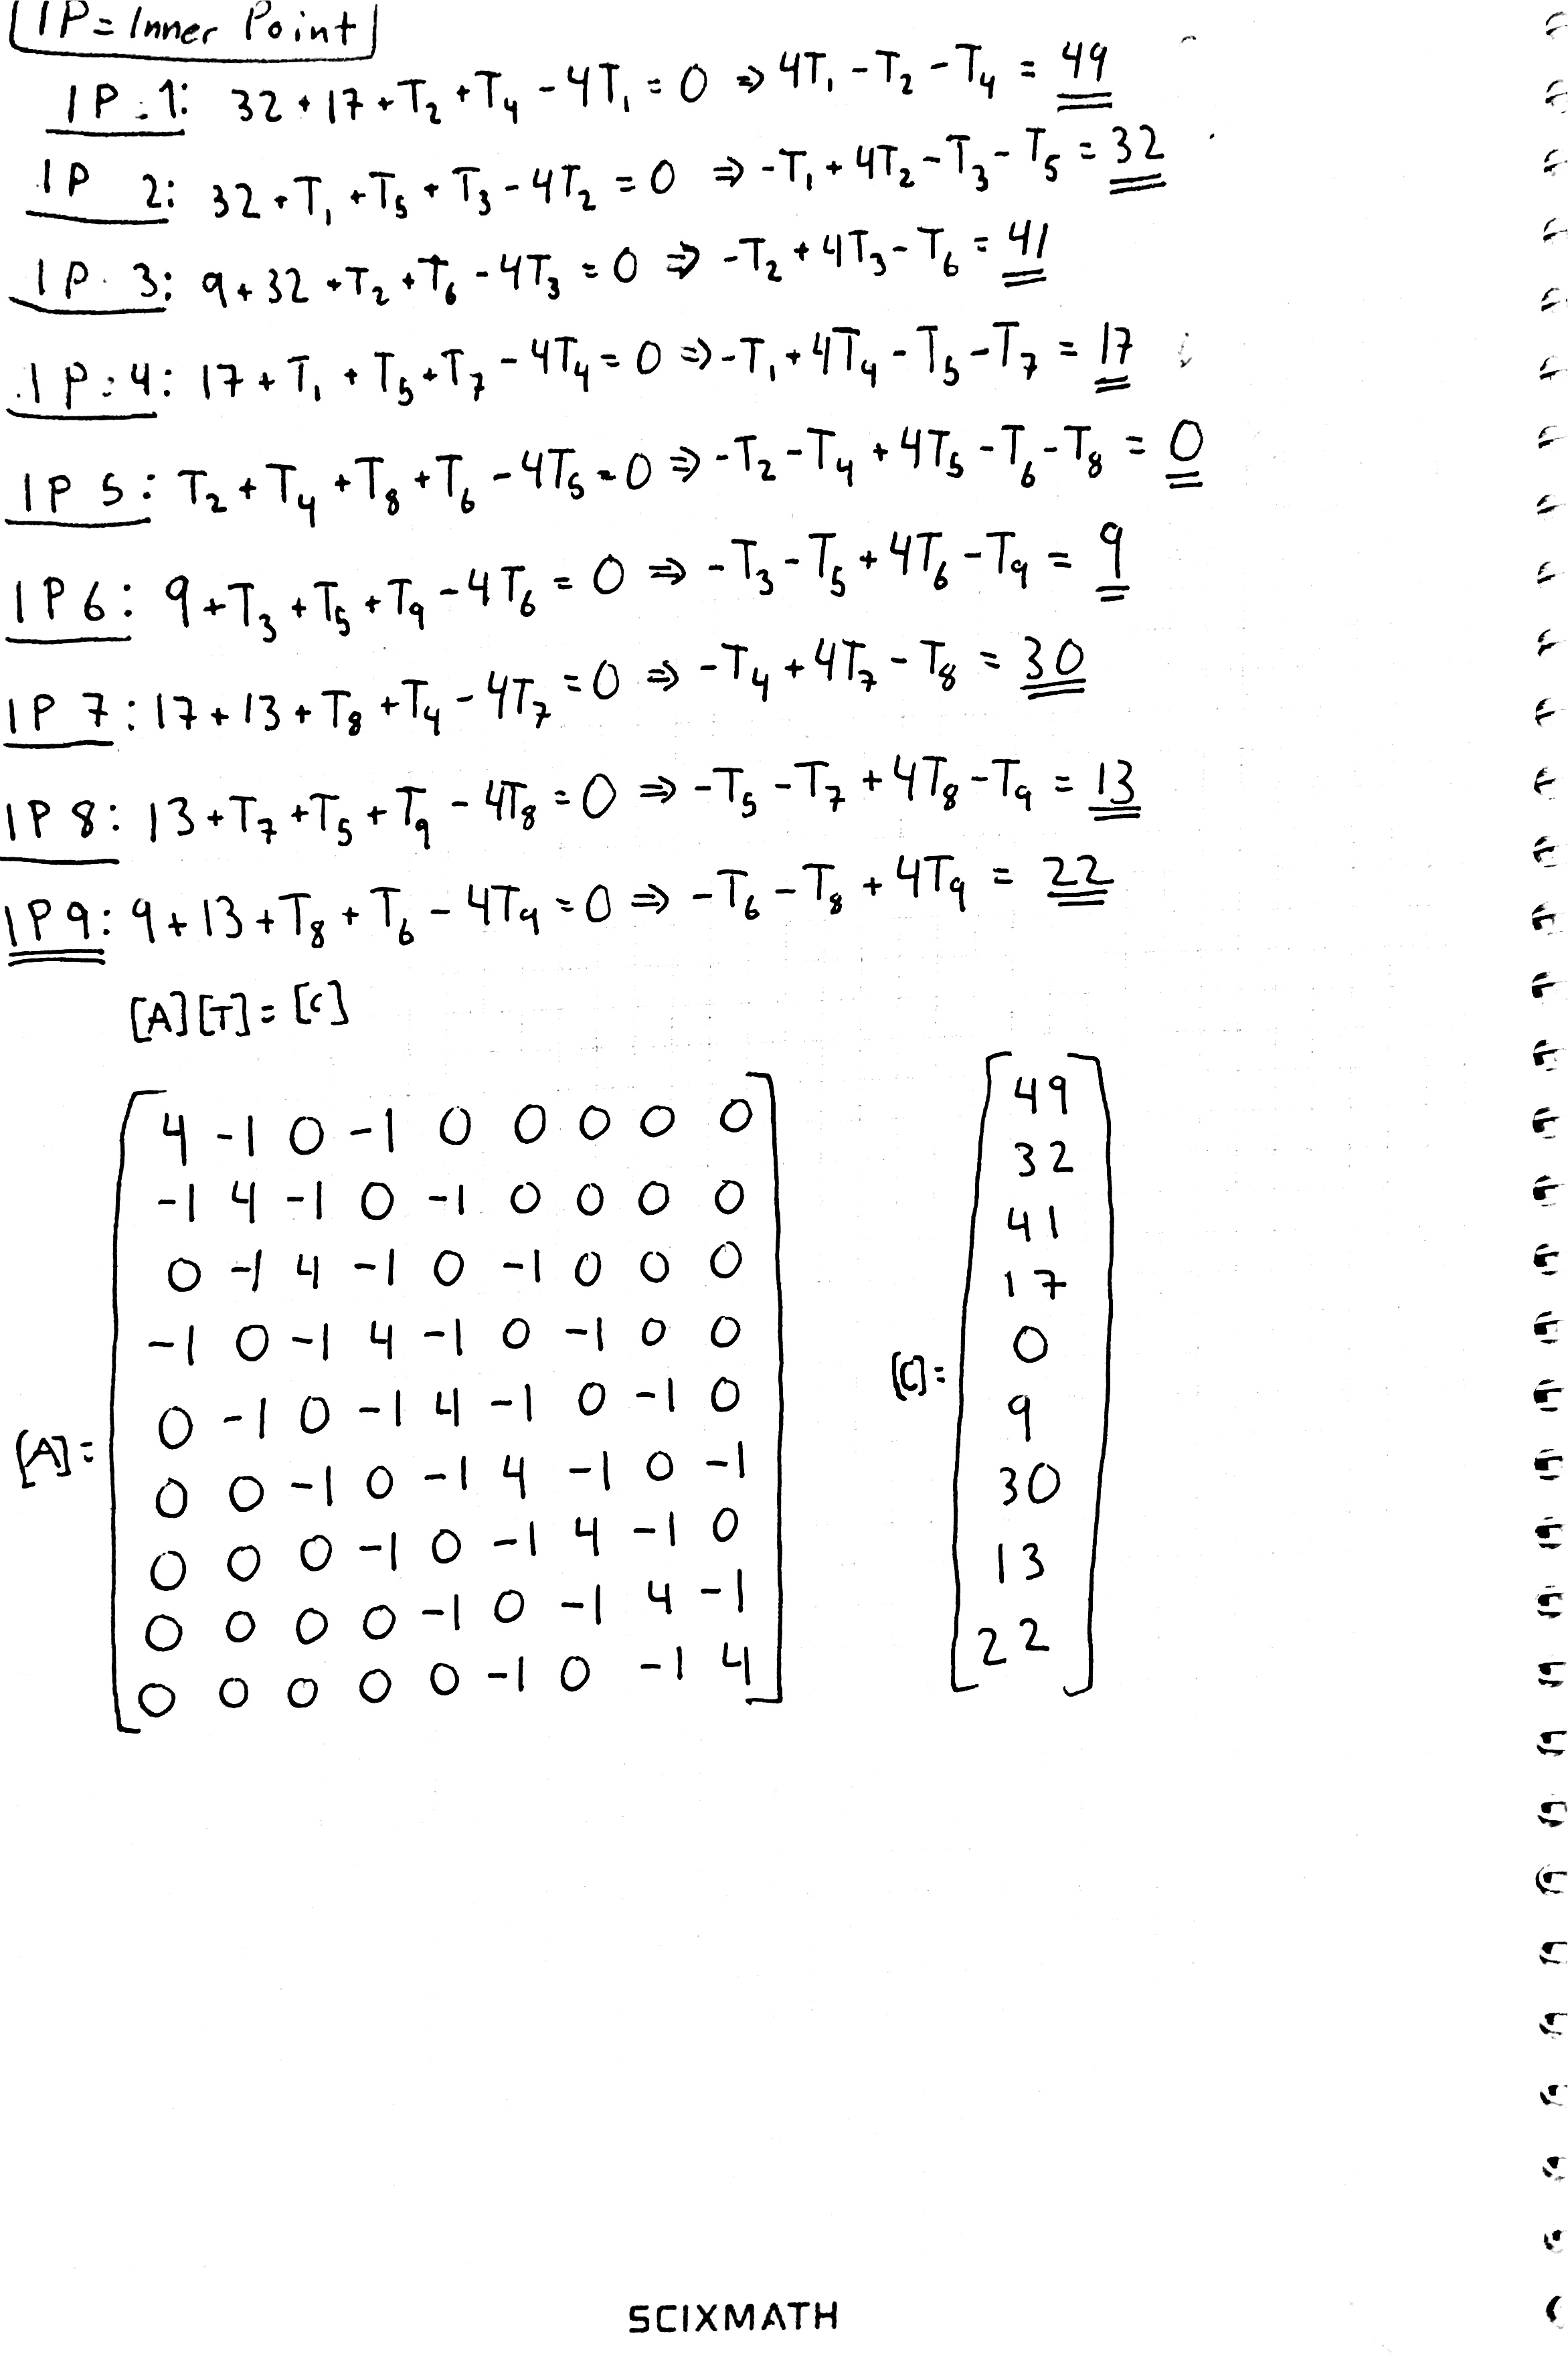 IP = Inner Point
IP.1: 32+17+T₂+T₄-4T₁=0 ⇒ 4T₁-T₂-T₄=49
IP 2: 32+T₁+T₅+T₃-4T₂=0 ⇒ -T₁+4T₂-T₃-T₅=32
IP.3: 9+32+T₂+T₆-4T₃=0 ⇒ -T₂+4T₃-T₆=41
IP:4: 17+T₁+T₅+T₇-4T₄=0 ⇒ -T₁+4T₄-T₅-T₇=17
IP 5: T₂+T₄+T₈+T₆-4T₅=0 ⇒ -T₂-T₄+4T₅-T₆-T₈=0
IP6: 9+T₃+T₅+T₉-4T₆=0 ⇒ -T₃-T₅+4T₆-T₉=9
IP 7: 17+13+T₈+T₄-4T₇=0 ⇒ -T₄+4T₇-T₈=30
IP 8: 13+T₇+T₅+T₉-4T₈=0 ⇒ -T₅-T₇+4T₈-T₉=13
IP9: 9+13+T₈+T₆-4T₉=0 ⇒ -T₆-T₈+4T₉=22
[A][T]=[C]
[A]=
4 -1 0 -1 0 0 0 0 0
-1 4 -1 0 -1 0 0 0 0
0 -1 4 -1 0 -1 0 0 0
-1 0 -1 4 -1 0 -1 0 0
0 -1 0 -1 4 -1 0 -1 0
0 0 -1 0 -1 4 -1 0 -1
0 0 0 -1 0 -1 4 -1 0
0 0 0 0 -1 0 -1 4 -1
0 0 0 0 0 -1 0 -1 4
[C]=
49
32
41
17
0
9
30
13
22
SCIXMATH